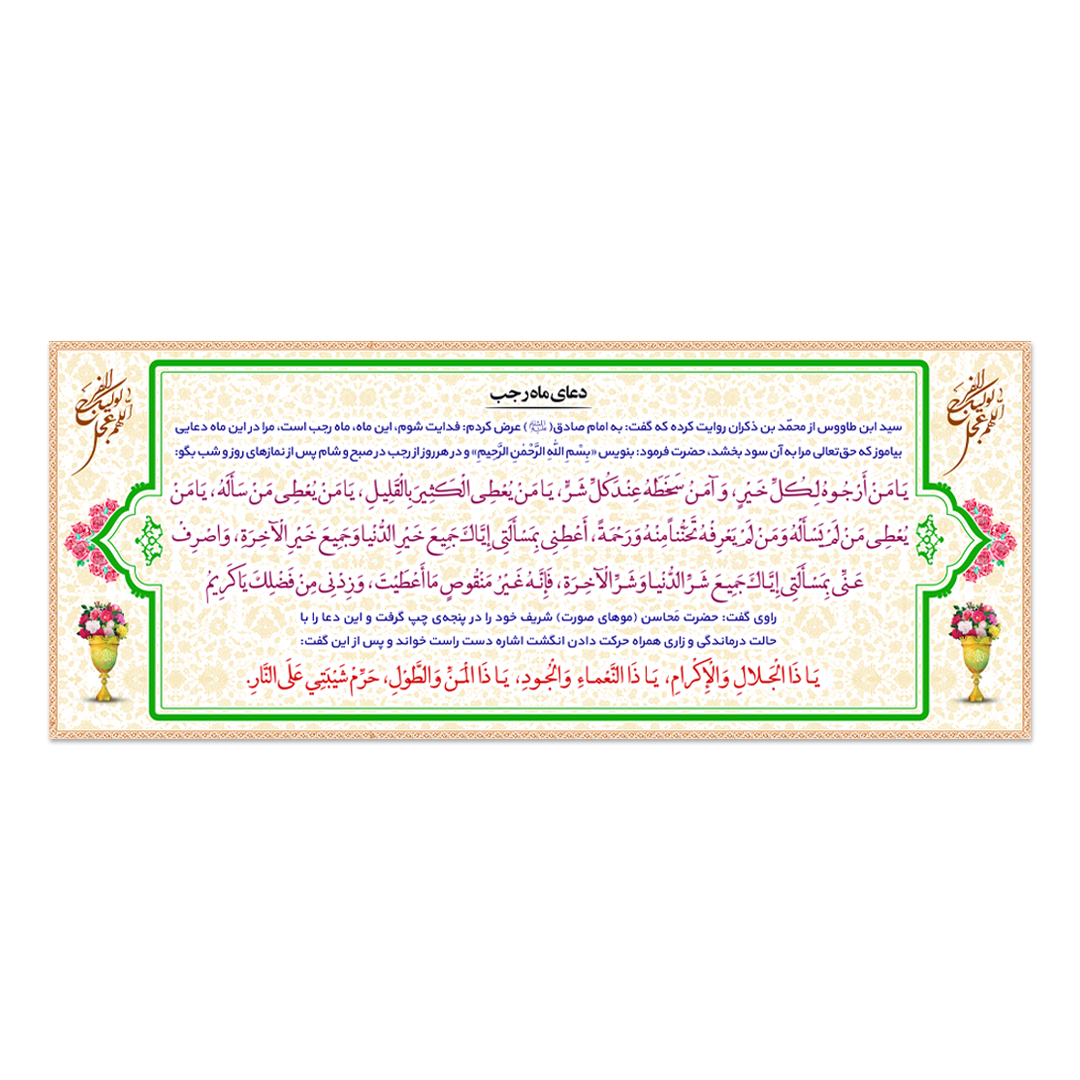 دعای ماه رجب
سید ابن طاووس از محمّد بن ذکران روایت کرده که گفت: به امام صادق(علیه‌السلام) عرض کردم: فدایت شوم، این ماه، ماه رجب است، مرا در این ماه دعایی
بیاموز که حق‌تعالی مرا به آن سود بخشد، حضرت فرمود: بنویس «بِسْمِ اللّٰهِ الرَّحْمٰنِ الرَّحِیمِ» و در هر روز از رجب در صبح و شام پس از نمازهای روز و شب بگو:
یَا مَنْ أَرْجُوهُ لِکُلِّ خَیْرٍ، وَ آمَنُ سَخَطَهُ عِنْدَ کُلِّ شَرٍّ، یَا مَنْ یُعْطِی الْکَثِیرَ بِالْقَلِیلِ، یَا مَنْ یُعْطِی مَنْ سَأَلَهُ، یَا مَنْ
یُعْطِی مَنْ لَمْ یَسْأَلْهُ وَ مَنْ لَمْ یَعْرِفْهُ تَحَنُّناً مِنْهُ وَ رَحْمَةً، أَعْطِنِی بِمَسْأَلَتِی إِیَّاکَ جَمِیعَ خَیْرِ الدُّنْیَا وَ جَمِیعَ خَیْرِ الْآخِرَةِ، وَ اصْرِفْ
عَنِّی بِمَسْأَلَتِی إِیَّاکَ جَمِیعَ شَرِّ الدُّنْیَا وَ شَرِّ الْآخِرَةِ، فَإِنَّهُ غَیْرُ مَنْقُوصٍ مَا أَعْطَیْتَ، وَ زِدْنِی مِنْ فَضْلِکَ یَا کَرِیمُ
راوی گفت: حضرت مَحاسن (موهای صورت) شریف خود را در پنجه‌ی چپ گرفت و این دعا را با
حالت درماندگی و زاری همراه حرکت دادن انگشت اشاره دست راست خواند و پس از این گفت:
یَا ذَا الْجَلالِ وَ الْإِکْرامِ، یَا ذَا النَّعْمَاءِ وَ الْجُودِ، یَا ذَا الْمَنِّ وَ الطَّوْلِ، حَرِّمْ شَیْبَتِي عَلَی النَّارِ.
اللهم عجل لولیک الفرج
اللهم عجل لولیک الفرج